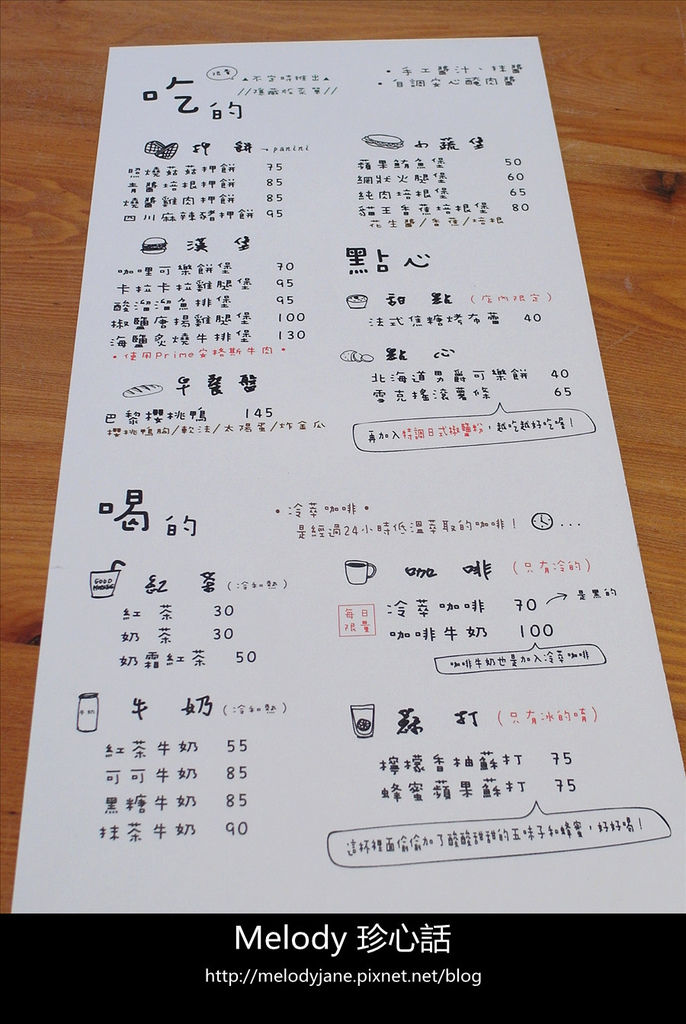 吃的
限量
▲不定時推出▲
//隱藏版菜單//
•手工醬汁、抹醬
•自調安心醃肉醬
押餅→panini
照燒菇菇押餅 75
青醬培根押餅 85
燒醬雞肉押餅 85
四川麻辣豬押餅 95
漢堡
咖哩可樂餅堡 70
卡拉卡拉雞腿堡 95
酸溜溜魚排堡 95
椒鹽唐揚雞腿堡 100
海鹽炙燒牛排堡 130
•使用Prime安格斯牛肉•
早餐盤
巴黎櫻桃鴨 145
櫻桃鴨胸/軟法/太陽蛋/炸金瓜
蔬堡
蘋果鮪魚堡 50
網狀火腿堡 60
純肉培根堡 65
貓王香蕉培根堡 80
花生醬/香蕉/培根
點心
甜點(店內限定)
法式焦糖烤布蕾 40
點心
北海道男爵可樂餅 40
雪克搖滾薯條 65
再加入特調日式椒鹽粉，越吃越好吃喔!
喝的
•冷萃咖啡•
是經過24小時低溫萃取的咖啡! ...
GOOD MORNING
紅茶(冷和熱)
紅茶 30
奶茶 30
奶霜紅茶 50
咖啡(只有冷的)
每日限量
冷萃咖啡 70 →是黑的
咖啡牛奶 100
咖啡牛奶也是加入冷萃咖啡
牛奶
牛奶(冷和熱)
紅茶牛奶 55
可可牛奶 85
黑糖牛奶 85
抹茶牛奶 90
蘇打(只有冰的唷)
檸檬香柚蘇打 75
蜂蜜蘋果蘇打 75
這杯裡面偷偷加了酸酸甜甜的五味子和蜂蜜，好好喝!
Melody 珍心話
http://melodyjane.pixnet.net/blog